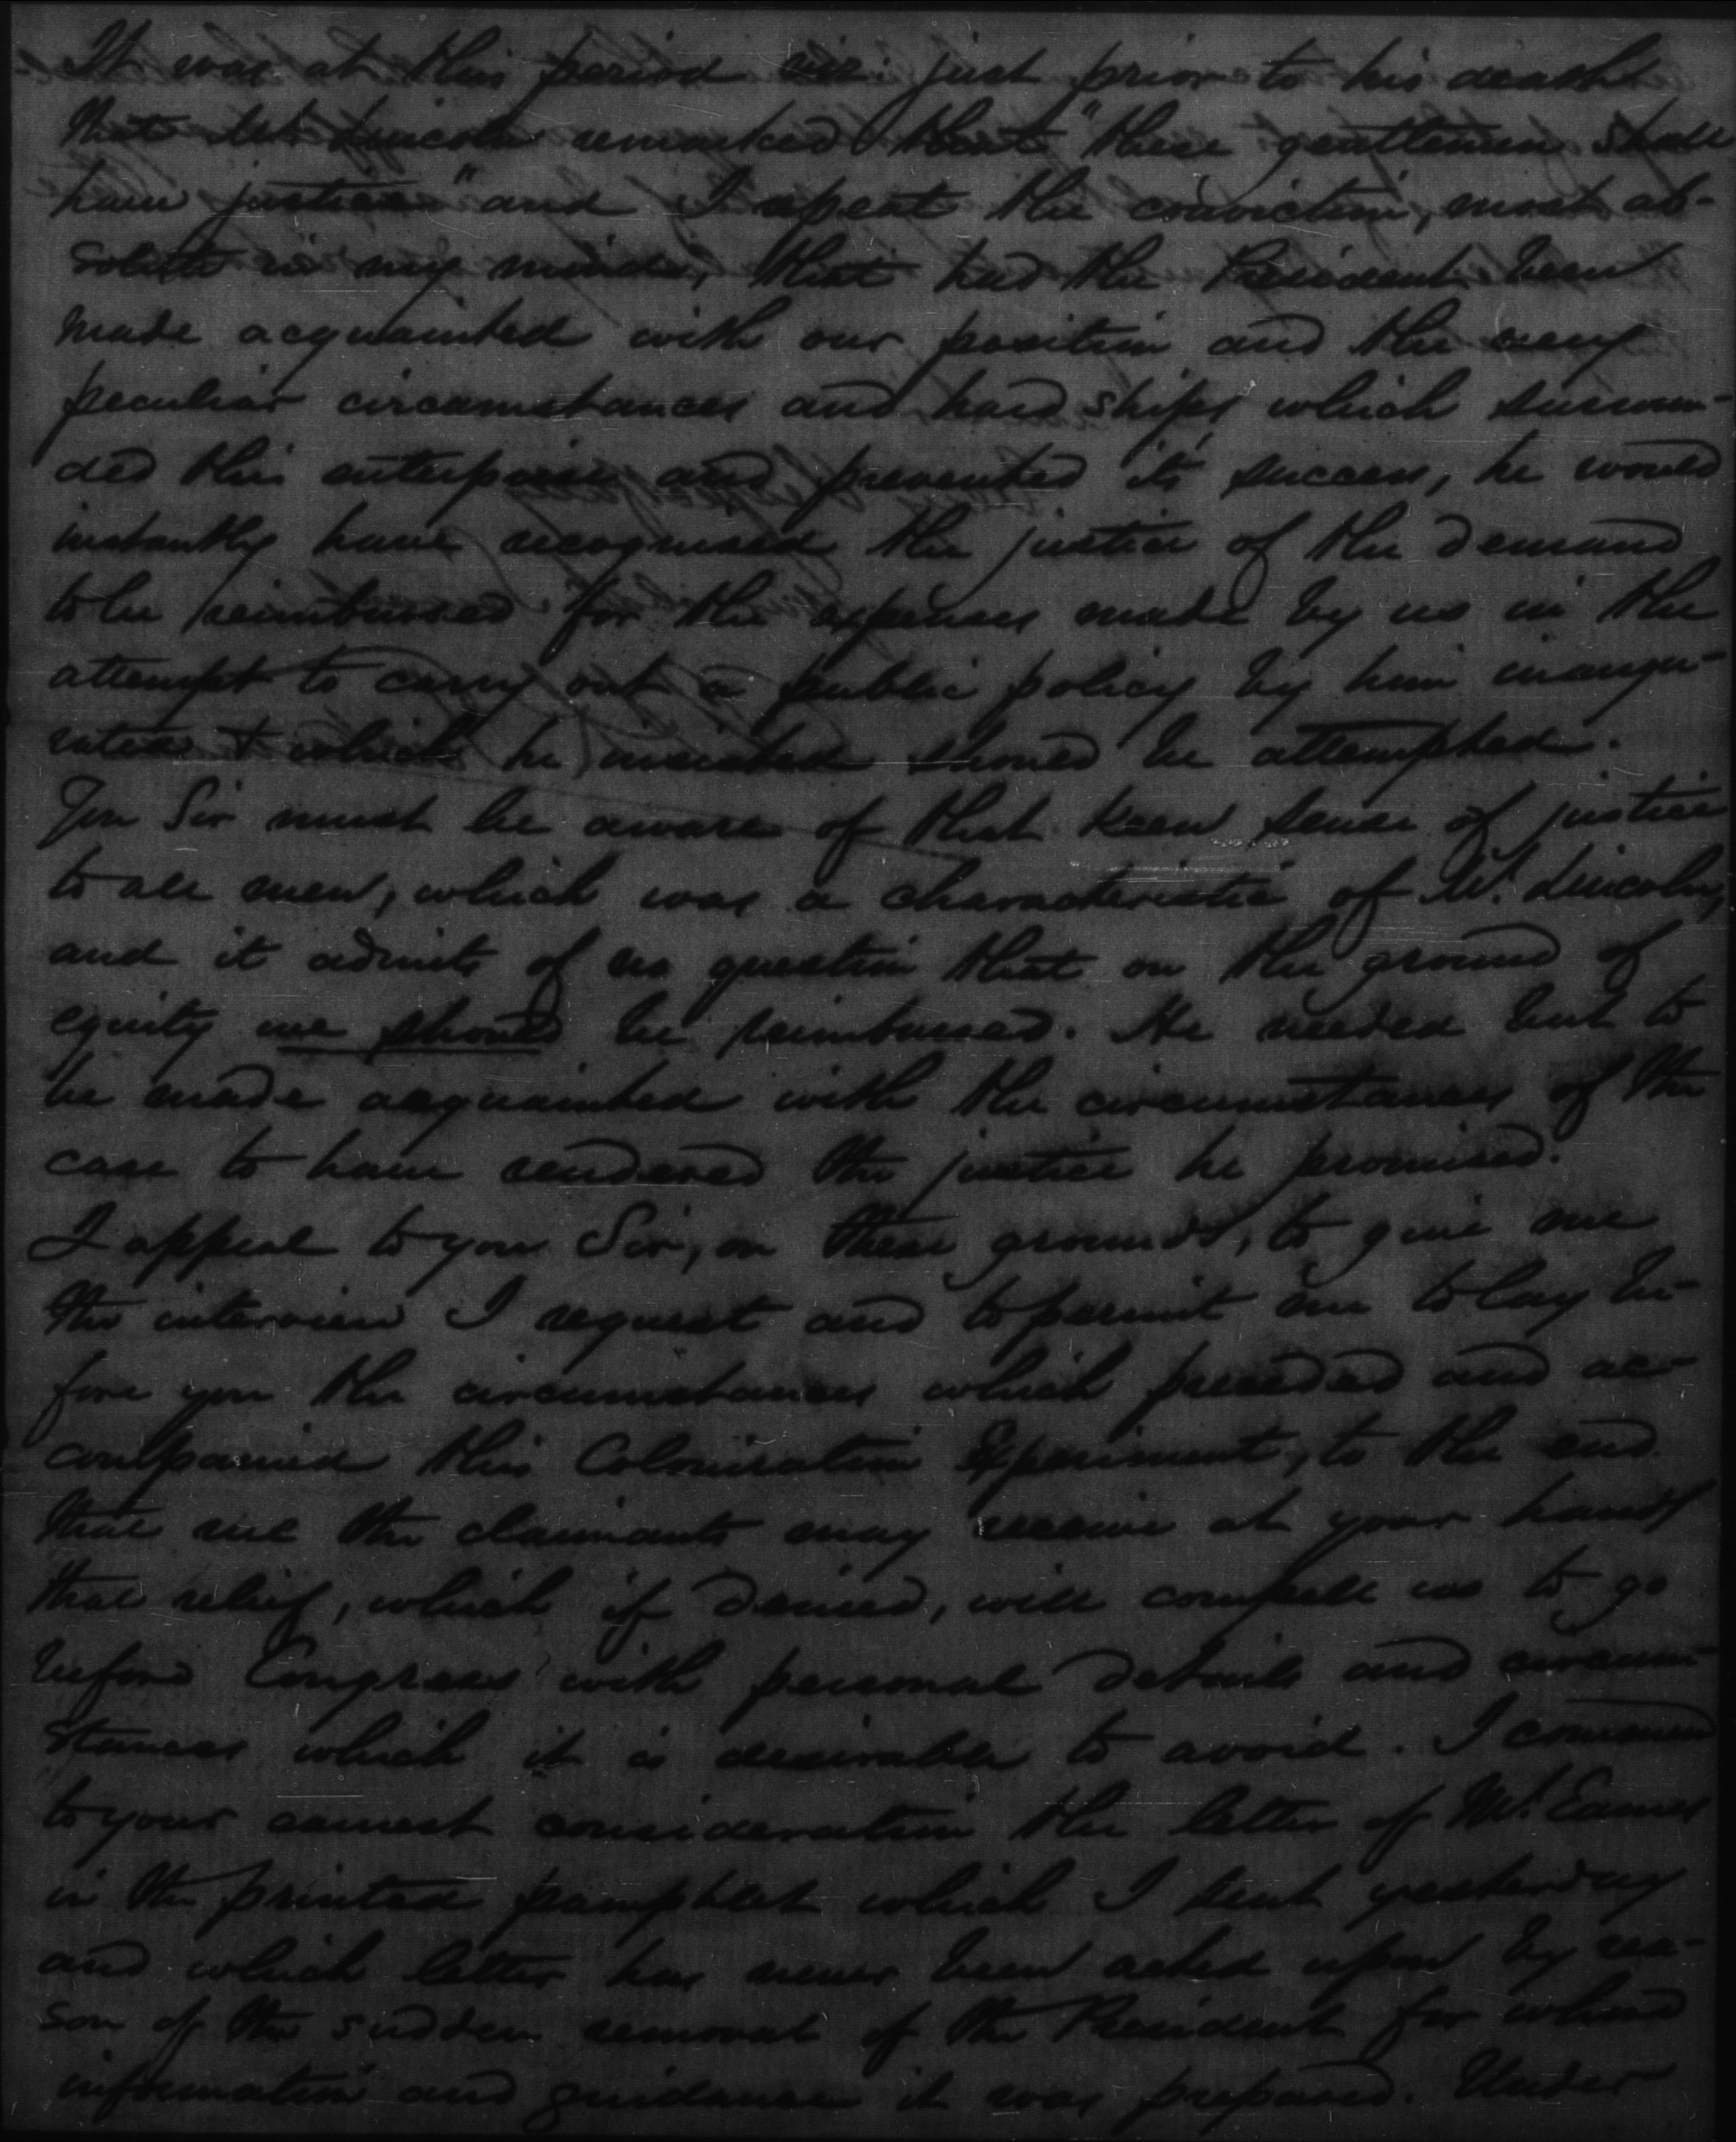 It was at this period viz: just prior to his death
that Mr. Lincoln remarked that "these gentlemen shall
have justice" and I repeat the conviction, most ab-
solute in my mind, that had the President been
made acquainted with our position and the very
peculiar circumstances and hardships which surroun-
ded this enterprise and prevented it's success, he would
instantly have recognised the justice of the demand
to be reimbursed for the expenses made by us in the
attempt to carry out a public policy by him inaugu-
rated & which he insisted should be attempted.
You Sir must be aware of that keen sense of justice
to all men, which was a characteristic of Mr. Lincoln,
and it admits of no question that on the ground of
equity we should be reimbursed. He needed but to
be made acquainted with the circumstances of the
case to have rendered the justice he promised.
I appeal to you Sir, on these grounds, to give me
the interview I request and to permit me to lay be-
fore you the circumstances which preceded and ac-
companied this Colonisation Experiment, to the end
that we the claimants may receive at your hands
that relief, which if denied, will compell us to go
before Congress with personal details and circum-
stances which it is desirable to avoid. I commend
to your earnest consideration the letter of Mr. Eames
in the printed pamphlet which I sent yesterday
and which letter has never been acted upon by rea-
son of the sudden removal of the President for whose
information and guidance it was prepared. Under